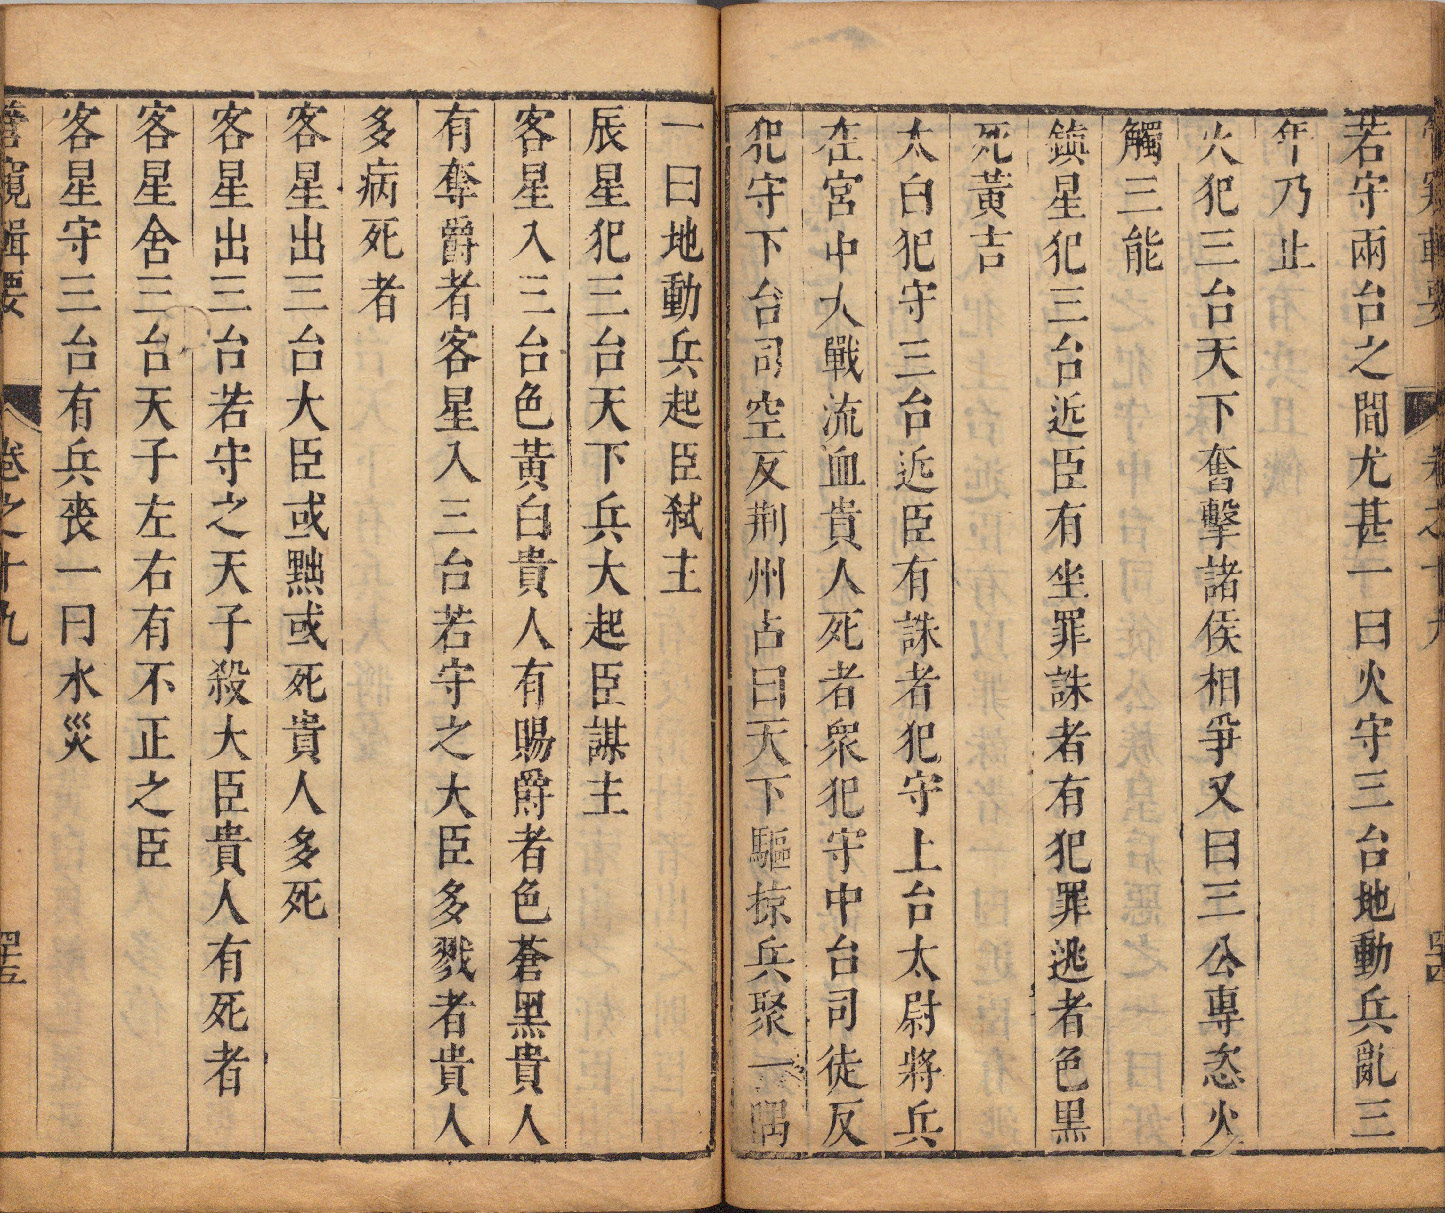 管窺輯要 卷之十九 四十四
若守兩台之間尤甚一曰火守三台地動兵亂三
年乃止
火犯三台天下奮擊諸侯相爭又曰三公專恣火
觸三能
鎮星犯三台近臣有坐罪誅者有犯罪逃者色黑
死黃吉
太白犯守三台近臣有誅者犯守上台太尉將兵
在宮中大戰流血貴人死者眾犯守中台司徒反
犯守下台司空反荆州占曰天下驅掠兵聚一隅
一曰地動兵起臣弒主
辰星犯三台天下兵大起臣謀主
客星入三台色黃白貴人有賜爵者色蒼黑貴人
有奪爵者客星入三台若守之大臣多戮者貴人
多病死者
客星出三台大臣或黜或死貴人多死
客星出三台若守之天子殺大臣貴人有死者
客星舍三台天子左右有不正之臣
客星守三台有兵喪一曰水災
管窺輯要 卷之十九 四十五